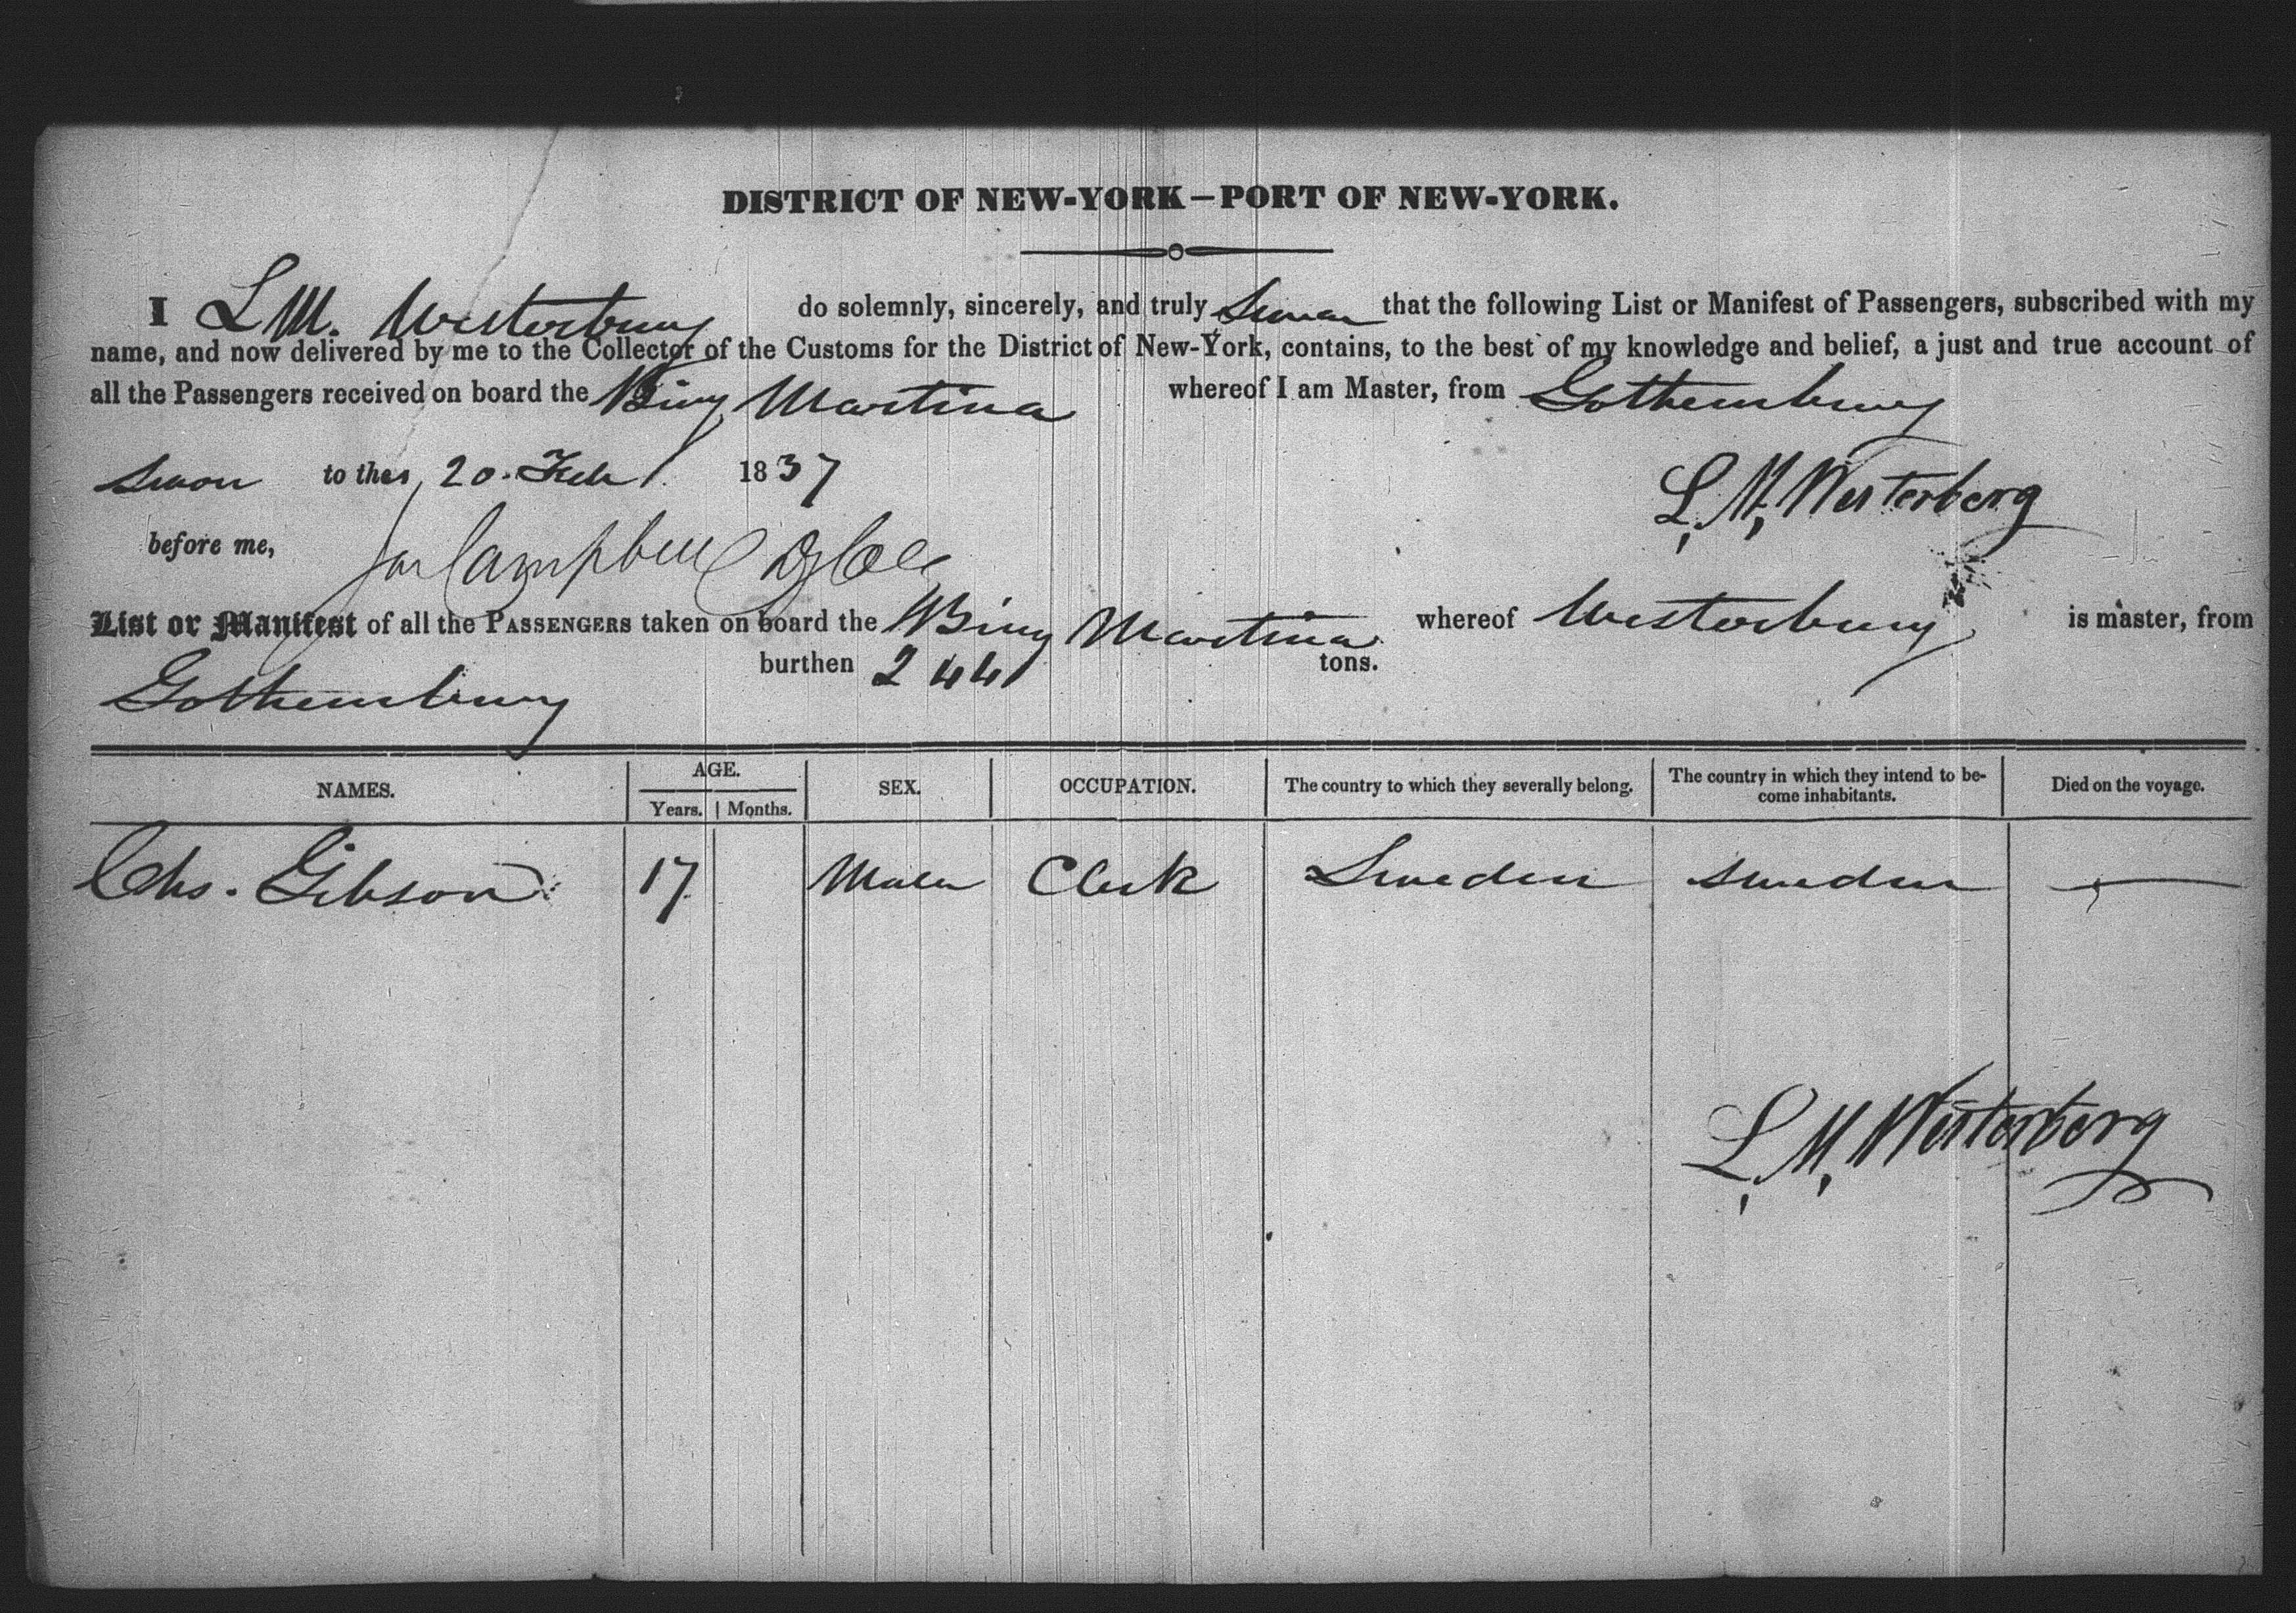 DISTRICT OF NEW-YORK—PORT OF NEW-YORK.
I L M. Westerburg do solemnly, sincerely, and truly Swear that the following List or Manifest of Passengers, subscribed with my
name, and now delivered by me to the Collector of the Customs for the District of New-York, contains, to the best of my knowledge and belief, a just and true account of
all the Passengers received on board the Brig Martina whereof I am Master, from Gothenburg
Sworn to this 20 Feb 1837 L. M. Westerberg
before me, Campbell
List or Manifest of all the PASSENGERS taken on board the Brig Martina whereof Westerburg is master, from
Gothenburg burthen 244 tons.
NAMES. AGE. SEX. OCCUPATION. The country to which they severally belong. The country in which they intend to be-
come inhabitants. Died on the voyage.
Years. Months.
Chs. Gibson 17 Male Clerk Sweden Sweden —
L. M. Westerberg